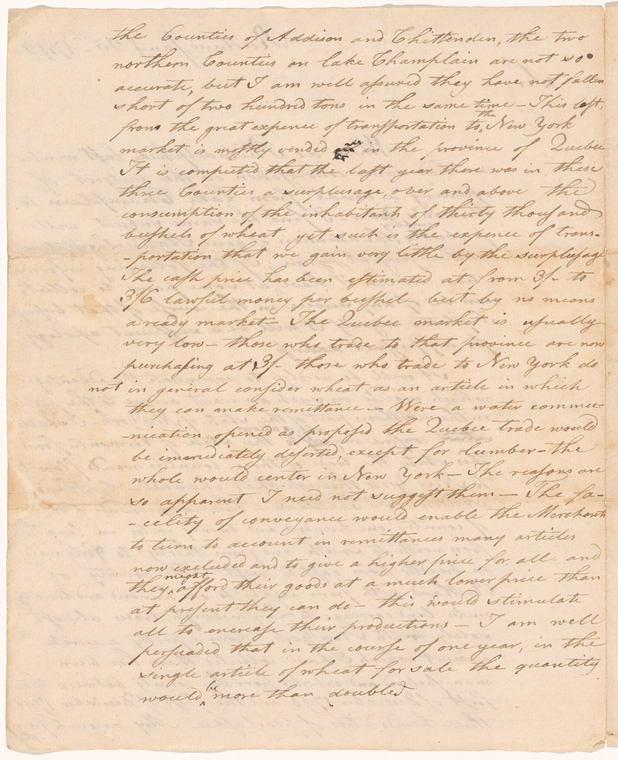 the Counties of Addison and Chittenden, the two
northern Counties on lake Champlain are not so
accurate, but I am well assured they have not fallen
short of two hundred tons in the same time – This last,
from the great expence of transportation to the New York
market is mostly vended in the province of Quebec
It is computed that the last year there was in these
three Counties a surplusage, over and above the
consumption of the inhabitants of thirty thousand
bushels of wheat, yet such is the expence of trans-
-portation that we gain very little by the surplusage
The cash price has been estimated at from 3/- to
3/6 lawful money per bushel but by no means
a ready market – The Quebec market is usually
very low – those who trade to that province are now
purchasing at 3/- those who trade to New York do
not in general consider wheat as an article in which
they can make remittance – Were a water commu-
-nication opened as proposed the Quebec trade would
be immediately deserted, except for lumber – the
whole would center in New York – The reasons are
so apparent I need not suggest them – The fa-
-celity of conveyance would enable the Merchant
to turn to account in remittances many articles
now excluded and to give a higher price for all and
they might afford their goods at a much lower price than
at present they can do – this would stimulate
all to encrease their productions – I am well
persuaded that in the course of one year, in the
single article of wheat for sale the quantity
would be more than doubled